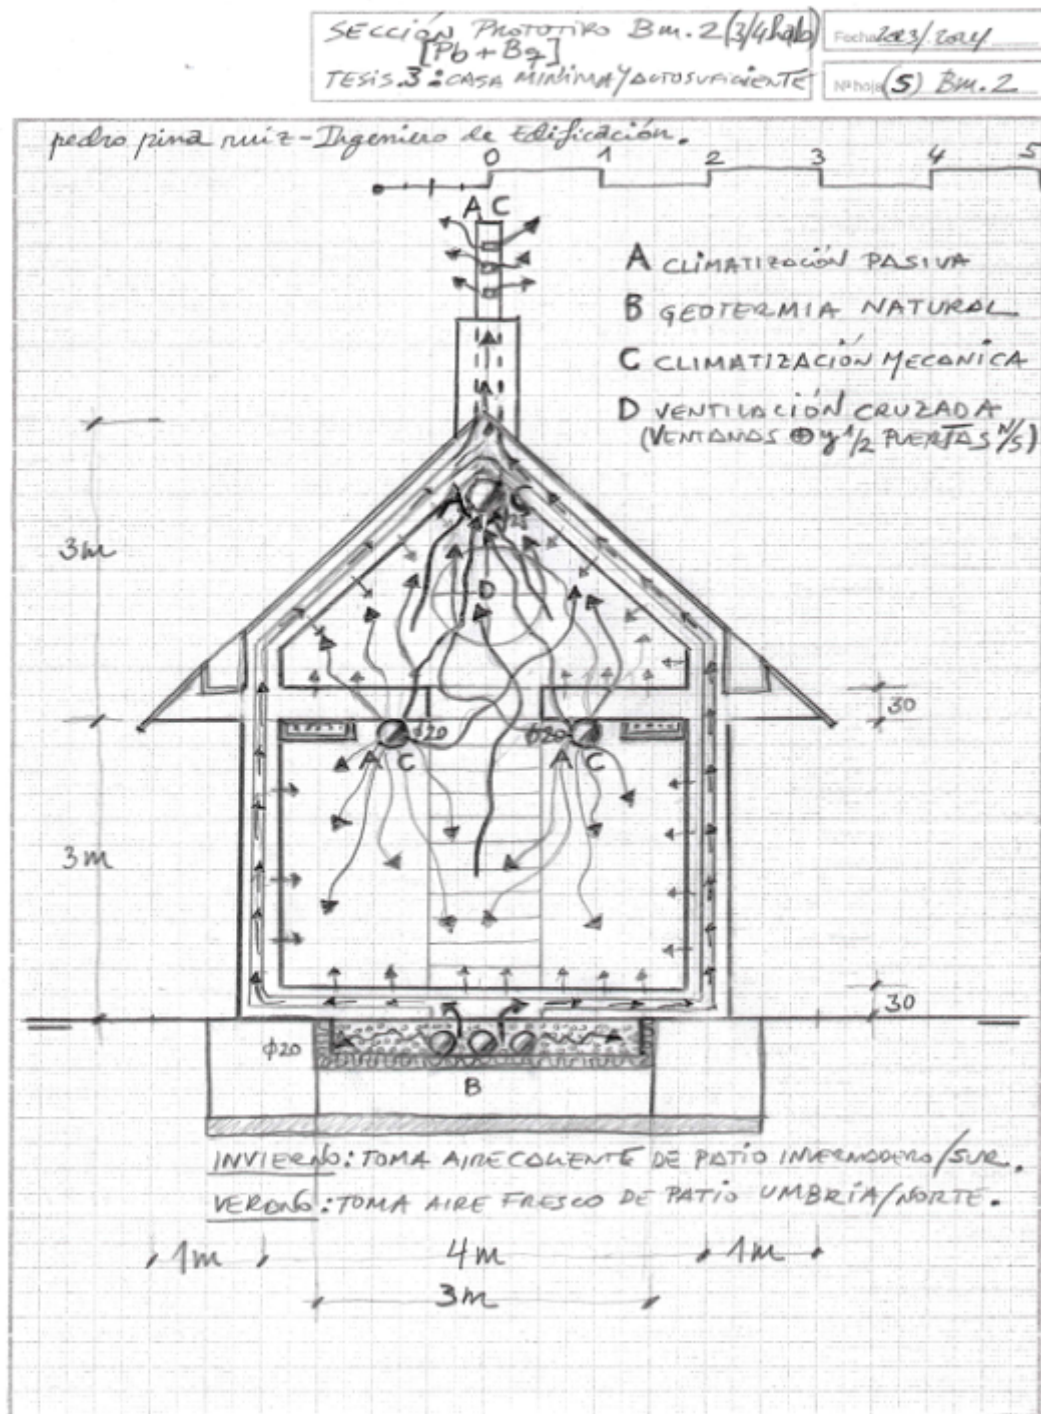 SECCIÓN PROTOTIPO Bm.2 (3/4 hab)
[Pb + Bq]
TESIS.3: CASA MINIMA Y AUTOSUFICIENTE
Fecha 2023/2024
Nº hoja (5) Bm.2
pedro pina ruiz - Ingeniero de Edificación.
0 1 2 3 4 5
A C
A CLIMATIZACIÓN PASIVA
B GEOTERMIA NATURAL
C CLIMATIZACIÓN MECANICA
D VENTILACIÓN CRUZADA
(VENTANAS ⊕ y 1/2 PUERTAS N/S)
3m
A C
D
30
φ20 φ20
A C A C
3m
30
φ20
B
INVIERNO: TOMA AIRE CALIENTE DE PATIO INVERNADERO/SUR.
VERANO: TOMA AIRE FRESCO DE PATIO UMBRÍA/NORTE.
1m 4m 1m
3m